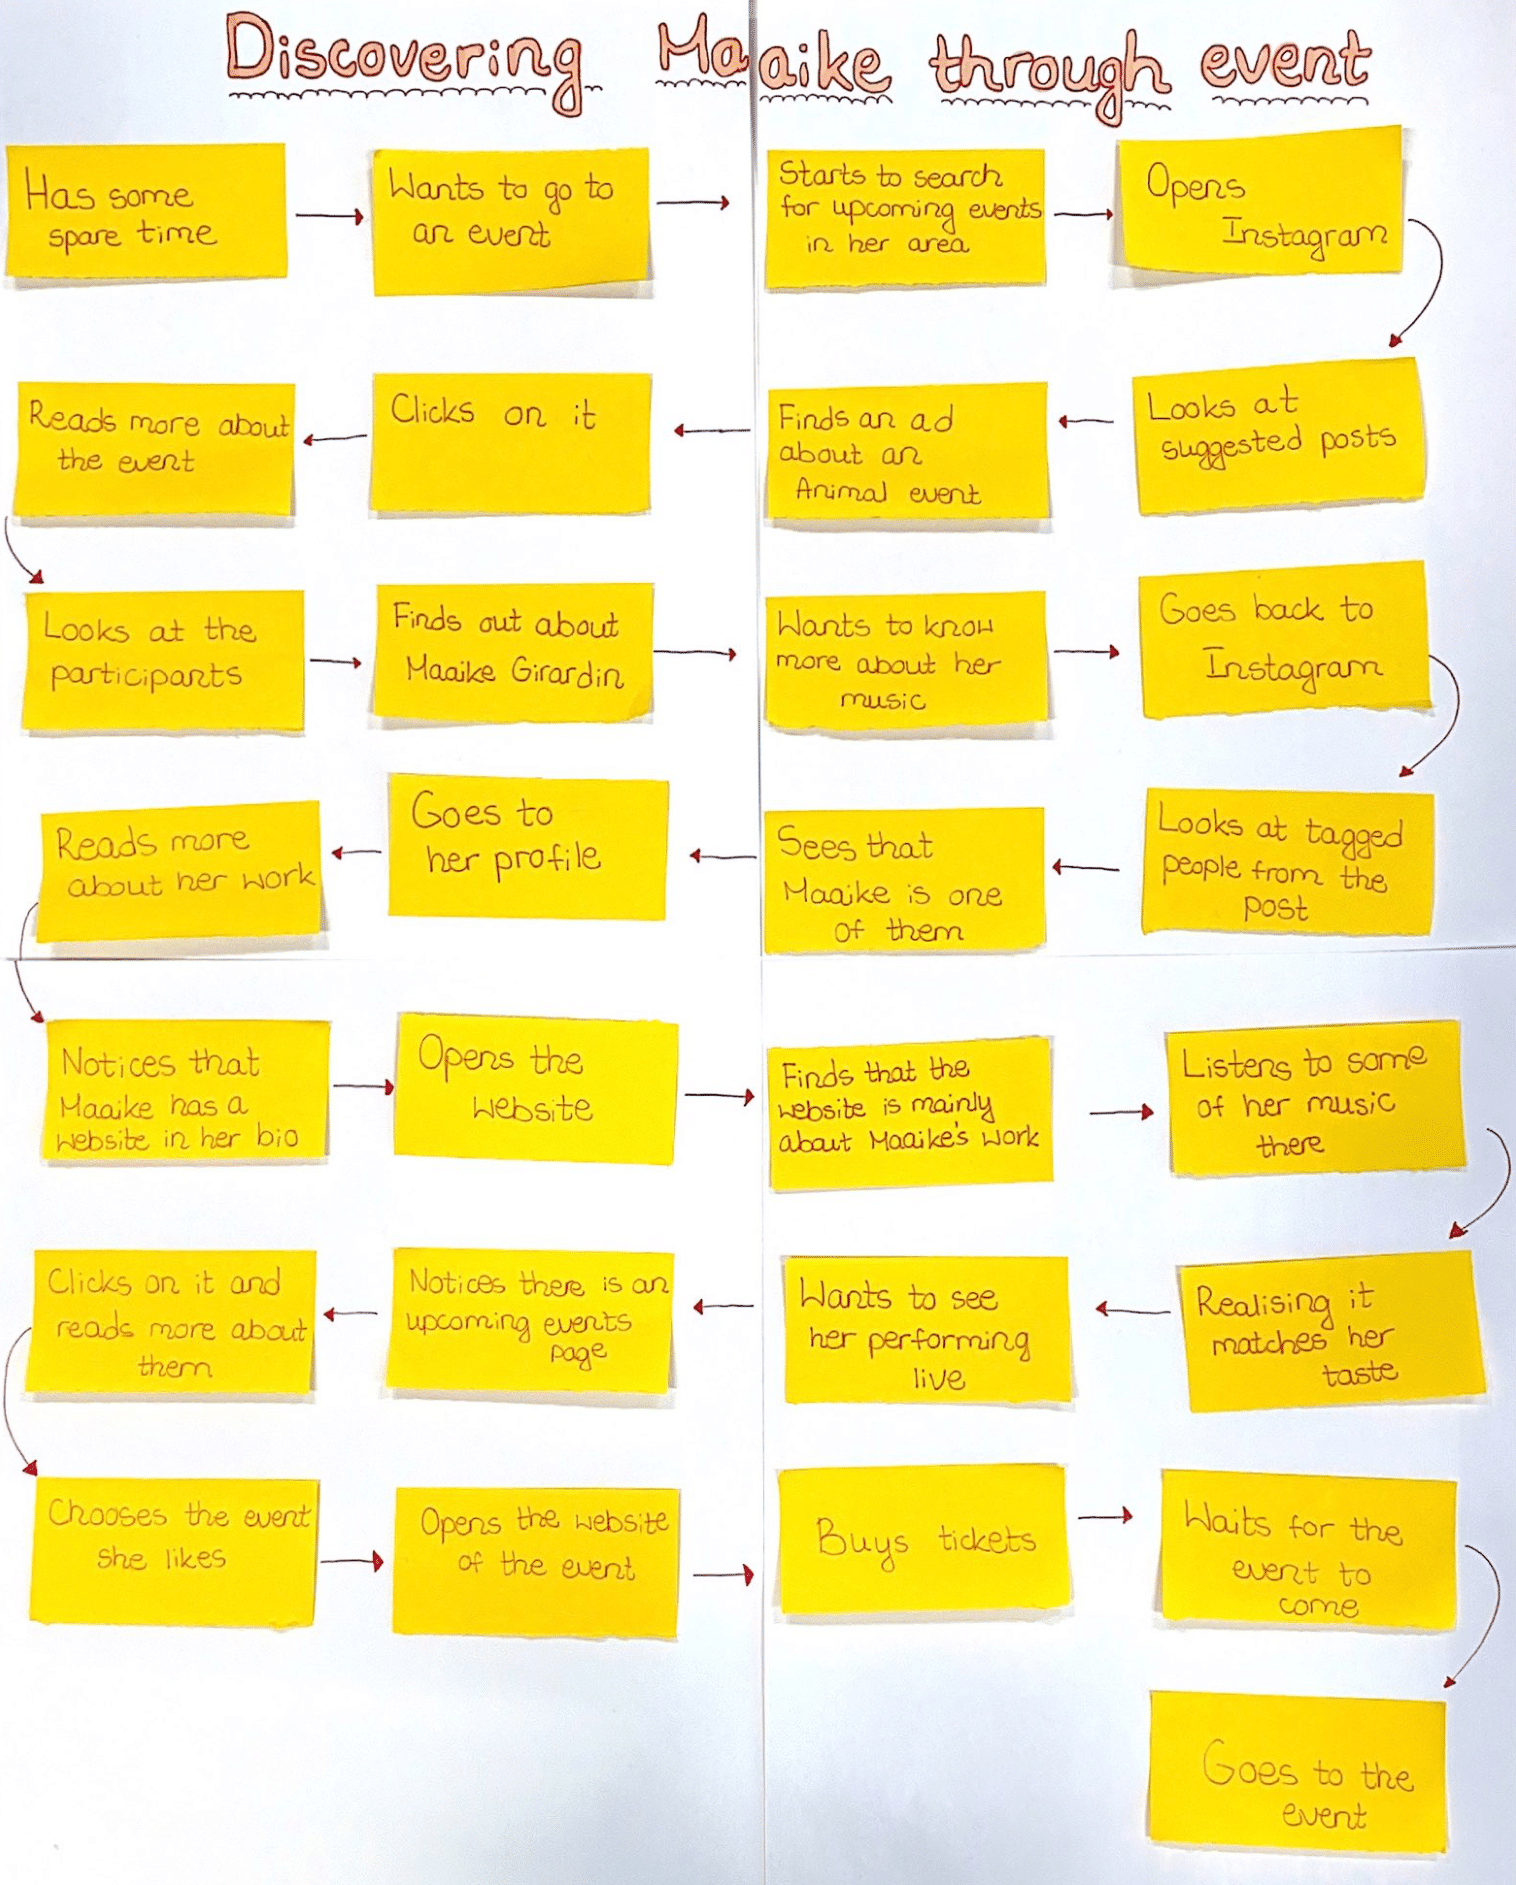 Discovering Maaike through event
Has some
spare time
Wants to go to
an event
Starts to search
for upcoming events
in her area
Opens
Instagram
Looks at
suggested posts
Finds an ad
about an
Animal event
Clicks on it
Reads more about
the event
Looks at the
participants
Finds out about
Maaike Girardin
Wants to know
more about her
music
Goes back to
Instagram
Looks at tagged
people from the
post
Sees that
Maaike is one
of them
Goes to
her profile
Reads more
about her work
Notices that
Maaike has a
website in her bio
Opens the
website
Finds that the
website is mainly
about Maaike's work
Listens to some
of her music
there
Realising it
matches her
taste
Wants to see
her performing
live
Notices there is an
upcoming events
page
Clicks on it and
reads more about
them
Chooses the event
she likes
Opens the website
of the event
Buys tickets
Waits for the
event to
come
Goes to the
event